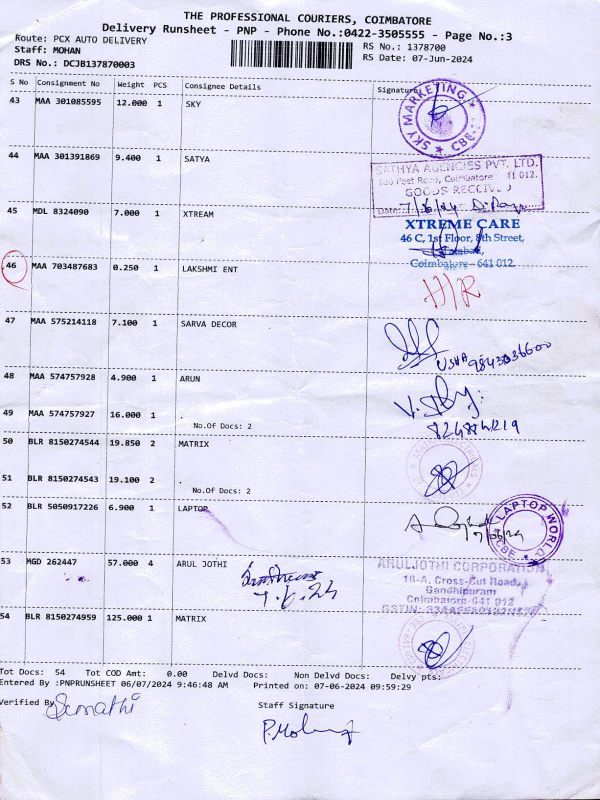 THE PROFESSIONAL COURIERS, COIMBATORE
Delivery Runsheet - PNP - Phone No.:0422-3505555 - Page No.:3
Route: PCX AUTO DELIVERY
RS No.: 1378700
Staff: MOHAN
RS Date: 07-Jun-2024
DRS No.: DCJB137870003
S No Consignment No Weight PCS Consignee Details Signature
43 MAA 301085595 12.000 1 SKY
SKY MARKETING CBE
44 MAA 301391869 9.400 1 SATYA
SATHYA AGENCIES PVT. LTD.
Feet Road, Coimbatore 41 012.
GOODS RECEIVED
Date: 7/6/24
45 MDL 8324090 7.000 1 XTREAM
XTREME CARE
46 C, 1st Floor, 8th Street,
Coimbatore - 641 012.
46 MAA 703487683 0.250 1 LAKSHMI ENT
H/R
47 MAA 575214118 7.100 1 SARVA DECOR
USHA
48 MAA 574757928 4.900 1 ARUN
49 MAA 574757927 16.000 1 .
No.Of Docs: 2
50 BLR 8150274544 19.850 2 MATRIX
51 BLR 8150274543 19.100 2 .
No.Of Docs: 2
52 BLR 5050917226 6.900 1 LAPTOP
LAPTOP WORLD CBE
53 MGD 262447 57.000 4 ARUL JOTHI
7.6.24
ARULJOTHI CORPORATION
16-A, Cross-Cut Road,
Gandhipuram
Coimbatore-641 012
GSTIN:
54 BLR 8150274959 125.000 1 MATRIX
Tot Docs: 54 Tot COD Amt: 0.00 Delvd Docs: Non Delvd Docs: Delvy pts:
Entered By :PNPRUNSHEET 06/07/2024 9:46:48 AM Printed on: 07-06-2024 09:59:29
Verified By
Staff Signature